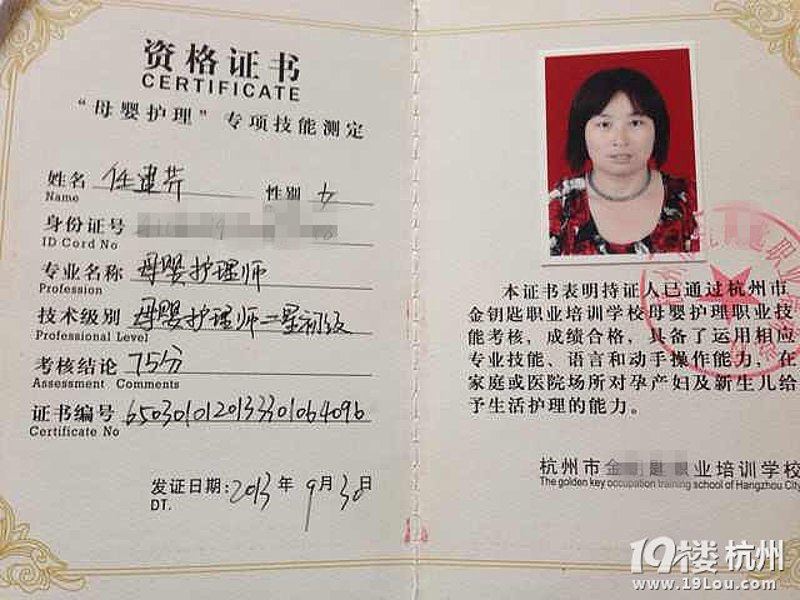 资格证书
CERTIFICATE
“母婴护理”专项技能测定
姓名 任建芹 性别 女
Name
身份证号
ID Cord No
专业名称 母婴护理师
Profession
技术级别 母婴护理师二星初级
Professional Level
考核结论 75分
Assessment Comments
证书编号 650301012013330106409b
Certificate No
发证日期:2013年9月30日
DT.
本证书表明持证人已通过杭州市
金钥匙职业培训学校母婴护理职业技
能考核，成绩合格，具备了运用相应
专业技能、语言和动手操作能力，在
家庭或医院场所对孕产妇及新生儿给
予生活护理的能力。
杭州市金 业培训学校
The golden key occupation training school of Hangzhou City
19楼 杭州
www.19Lou.com